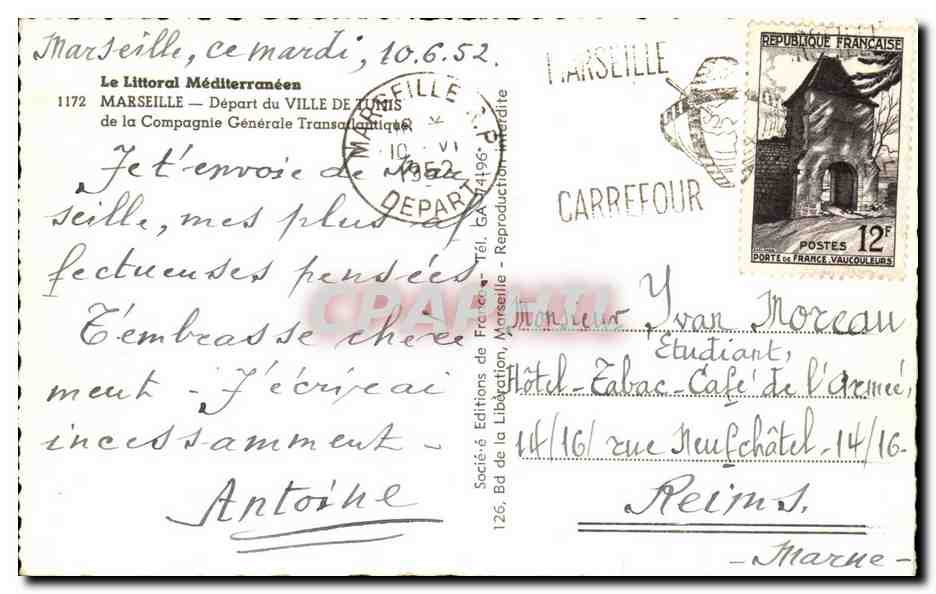 Marseille, ce mardi, 10.6.52.
Le Littoral Méditerranéen
1172 MARSEILLE — Départ du VILLE DE TUNIS
de la Compagnie Générale Transatlantique
Je t'envoie de Mar
seille, mes plus af
fectueuses pensées
T'embrasse chère
ment - J'écrirai
incessamment -
Antoine
Société Editions de France - Tél. GA. 14-96
126, Bd de la Libération, Marseille - Reproduction interdite
MARSEILLE G.P.
18
10 VI
1952
DEPART
MARSEILLE
CARREFOUR
REPUBLIQUE FRANÇAISE
POSTES 12F
PORTE DE FRANCE. VAUCOULEURS
CPAPHIL
Monsieur Yvan Moreau
Etudiant,
Hôtel-Tabac-Café de l'Armée,
14/16/ rue Neufchâtel-14/16-
Reims.
-Marne-